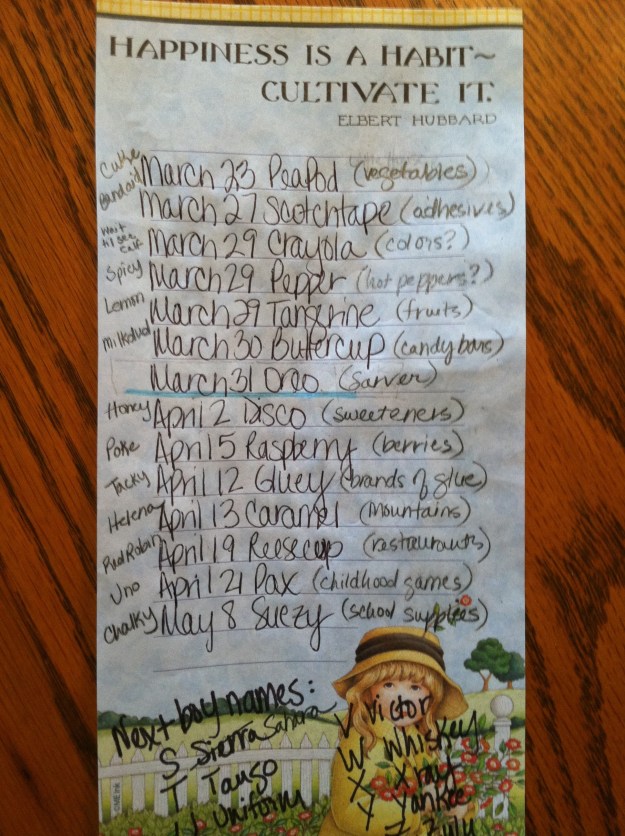 HAPPINESS IS A HABIT~
CULTIVATE IT.
ELBERT HUBBARD
Cuke March 23 PeaPod (vegetables)
Bandaid March 27 Scotchtape (adhesives)
Wait til see calf March 29 Crayola (colors?)
Spicy March 29 Pepper (hot peppers?)
Lemon March 29 Tangerine (fruits)
milkdud March 30 Buttercup (candy bars)
March 31 Oreo (Sarver)
Honey April 2 Disco (sweeteners)
Poke April 5 Raspberry (berries)
Tacky April 12 Gluey (brands of glue)
Helena April 13 Caramel (mountains)
Red Robin April 19 Reesecup (restaurants)
Uno April 21 Pax (childhood games)
Chalky May 8 Suezy (school supplies)
Next boy names:
S Sierra Sahara
T Tango
U Uniform
V Victor
W Whiskey
X Xray
Y Yankee
Z Zulu